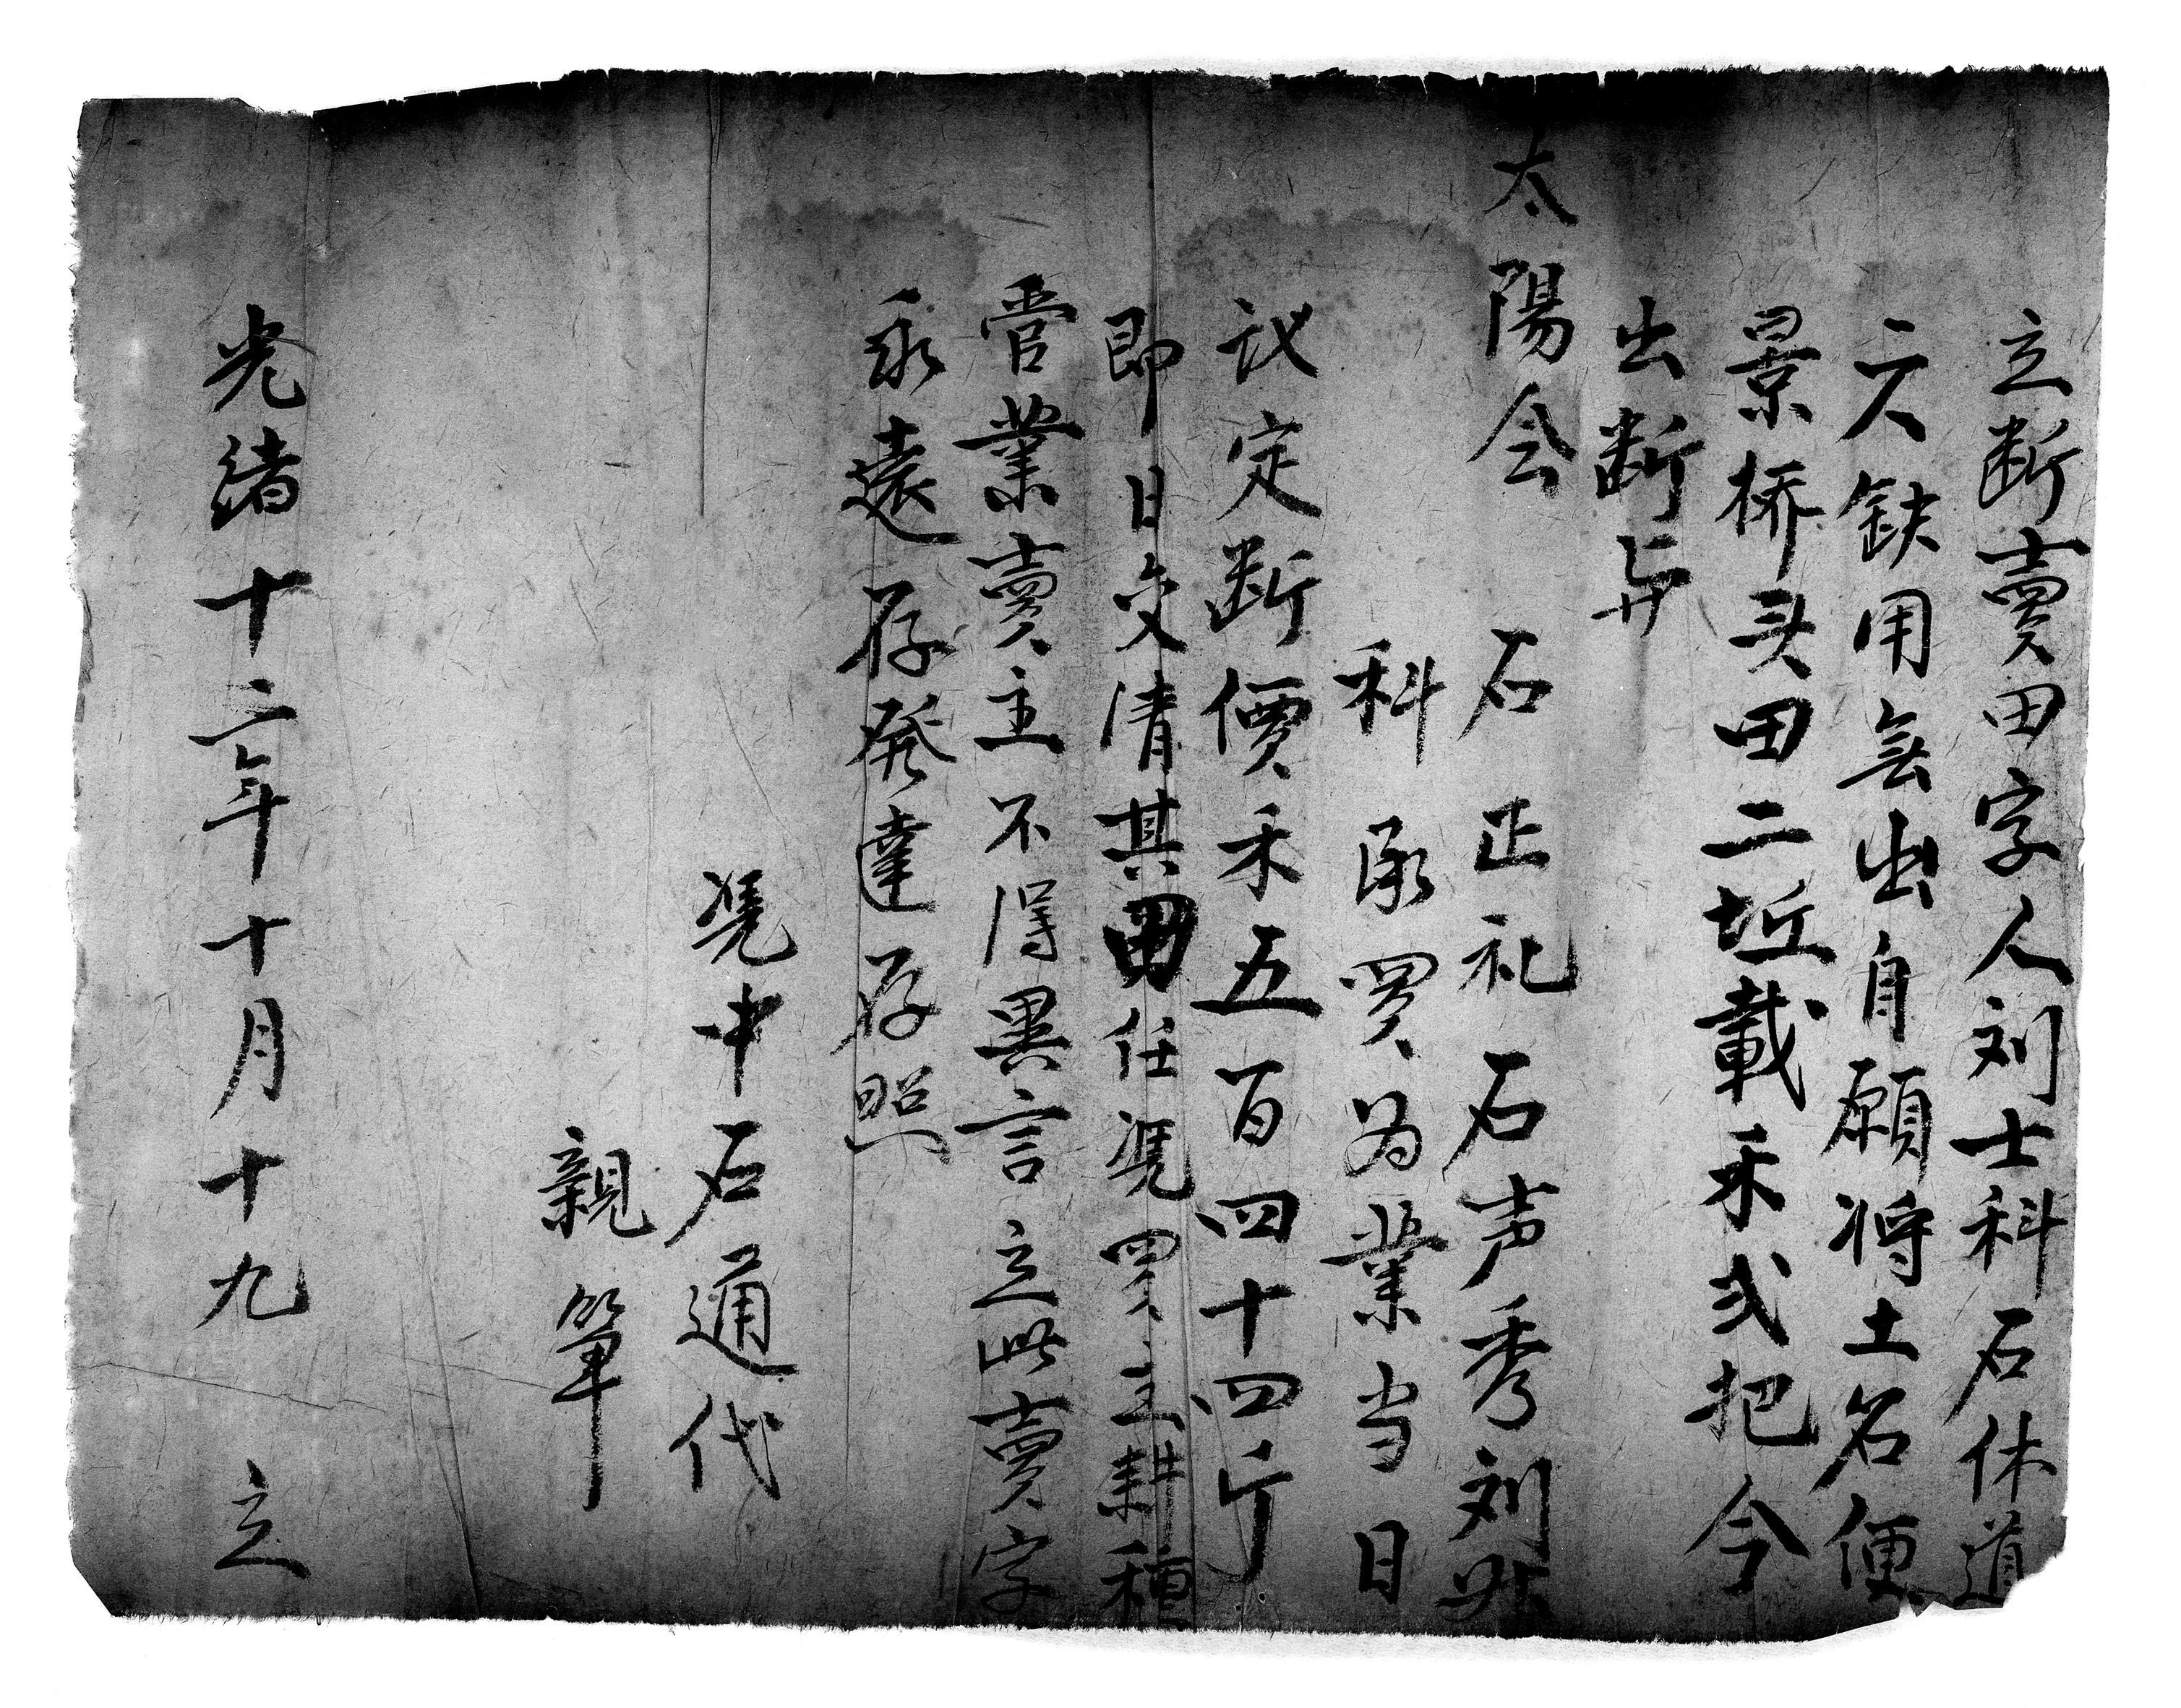 立断賣田字人刘士科石休道
二人缺用無出自願将土名便
景桥头田二坵載禾弍把今
出断与
太陽会　石正礼　石声秀　刘
科承買为業当日
议定断價禾五百四十四斤
即日交清其田任凴買主耕種
管業賣主不得異言立此賣字
永遠存發達存照
凴中石通代
親筆
光緒十二年十月十九　立